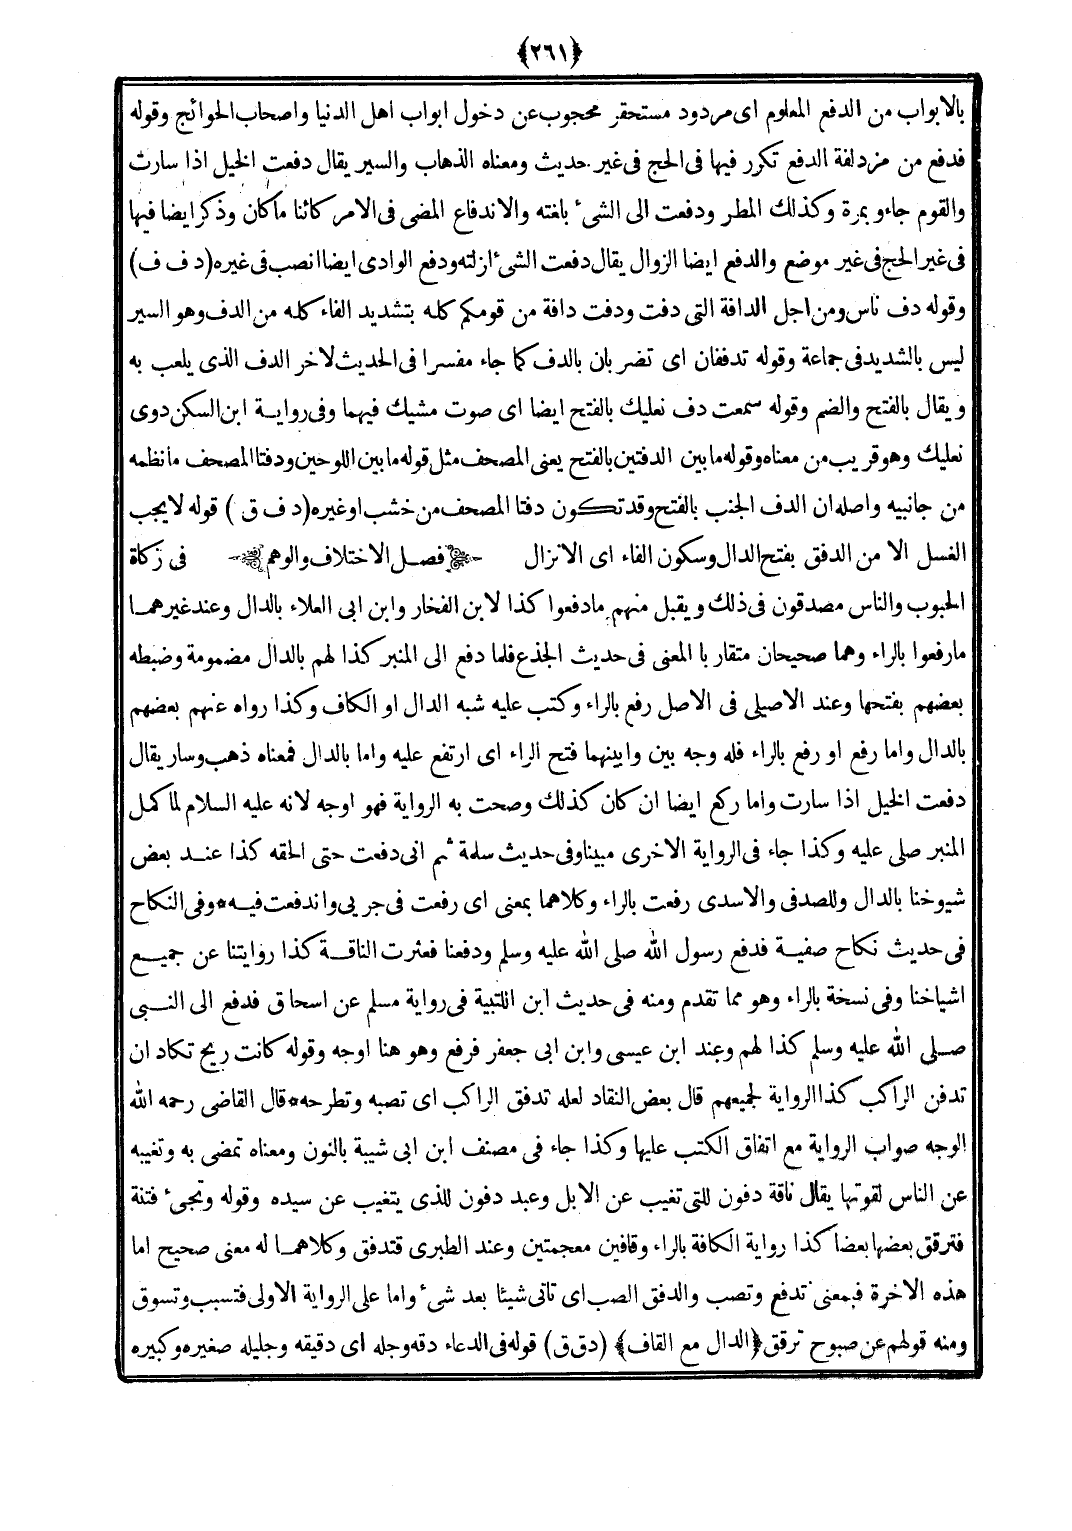 ﴿٢٦١﴾
بالابواب من الدفع المعلوم اى مردود مستحقر محجوب عن دخول ابواب اهل الدنيا واصحاب الحوائج وقوله
فدفع من مزدلفة الدفع تكرر فيها فى الحج فى غير حديث ومعناه الذهاب والسير يقال دفعت الخيل اذا سارت
والقوم جاءو بمرة وكذلك المطر ودفعت الى الشىء بلغته والاندفاع المضى فى الامر كائنا ماكان وذكر ايضا فيها
فى غير الحج فى غير موضع والدفع ايضا الزوال يقال دفعت الشىء ازلته ودفع الوادى ايضا انصب فى غيره (د ف ف)
وقوله دف ناس ومن اجل الدافة التى دفت ودفت دافة من قومكم كله بتشديد الفاء كله من الدف وهو السير
ليس بالشديد فى جماعة وقوله تدففان اى تضربان بالدف كما جاء مفسرا فى الحديث لاخر الدف الذى يلعب به
ويقال بالفتح والضم وقوله سمعت دف نعليك بالفتح ايضا اى صوت مشيك فيهما وفى رواية ابن السكن دوى
نعليك وهو قريب من معناه وقوله ما بين الدفتين بالفتح يعنى المصحف مثل قوله ما بين اللوحين ودفتا المصحف مانظمه
من جانبيه واصله ان الدف الجنب بالفتح وقد تكون دفتا المصحف من خشب او غيره (د ف ق) قوله لا يجب
الغسل الا من الدفق بفتح الدال وسكون الفاء اى الانزال ﴿فصل الاختلاف والوهم﴾ فى زكاة
الحبوب والناس مصدقون فى ذلك ويقبل منهم مادفعوا كذا لابن الفخار وابن ابى العلاء بالدال وعند غيرهما
مارفعوا بالراء وهما صحيحان متقاربا المعنى فى حديث الجذع فلما دفع الى المنبر كذا لهم بالدال مضمومة وضبطه
بعضهم بفتحها وعند الاصيلى فى الاصل رفع بالراء وكتب عليه شبه الدال او الكاف وكذا رواه عنهم بعضهم
بالدال واما رفع او رفع بالراء فله وجه بين وابينهما فتح الراء اى ارتفع عليه واما بالدال فمعناه ذهب وسار يقال
دفعت الخيل اذا سارت واما ركع ايضا ان كان كذلك وصحت به الرواية فهو اوجه لانه عليه السلام لما كمل
المنبر صلى عليه وكذا جاء فى الرواية الاخرى مبينا وفى حديث سلمة ثم انى دفعت حتى الحقه كذا عند بعض
شيوخنا بالدال وللصدفى والاسدى رفعت بالراء وكلاهما بمعنى اى رفعت فى جريى واندفعت فيه*وفى النكاح
فى حديث نكاح صفية فدفع رسول الله صلى الله عليه وسلم ودفعنا فعثرت الناقة كذا روايتنا عن جميع
اشياخنا وفى نسخة بالراء وهو مما تقدم ومنه فى حديث ابن اللتبية فى رواية مسلم عن اسحاق فدفع الى النبى
صلى الله عليه وسلم كذا لهم وعند ابن عيسى وابن ابى جعفر فرفع وهو هنا اوجه وقوله كانت ريح تكاد ان
تدفن الراكب كذا الرواية لجميعهم قال بعض النقاد لعله تدفق الراكب اى تصبه وتطرحه*قال القاضى رحمه الله
الوجه صواب الرواية مع اتفاق الكتب عليها وكذا جاء فى مصنف ابن ابى شيبة بالنون ومعناه تمضى به وتغيبه
عن الناس لقوتها يقال ناقة دفون للتى تغيب عن الابل وعبد دفون للذى يتغيب عن سيده وقوله وتجىء فتنة
فترقق بعضها بعضا كذا رواية الكافة بالراء وقافين معجمتين وعند الطبرى فتدفق وكلاهما له معنى صحيح اما
هذه الاخرة فبمعنى تدفع وتصب والدفق الصب اى تاتى شيئا بعد شىء واما على الرواية الاولى فتسبب وتسوق
ومنه قولهم عن صبوح ترقق ﴿الدال مع القاف﴾ (دق ق) قوله فى الدعاء دقه وجله اى دقيقه وجليله صغيره وكبيره